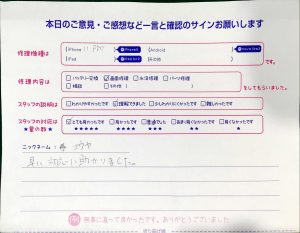 本日のご意見・ご感想など一言と確認のサインお願いします
修理機種は
iPhone 11 Pro
Android
iPad
その他
です。
修理内容は
バッテリー交換 画面修理 水没修理 パーツ修理
その他
をしてもらいました。
スタッフの説明は
わかりやすかったです 理解できました 少しわかりにくかったです 難しかったです
スタッフの対応は
★星の数★
とても良かったです 良かったです 普通でした あまり良くなかったです 良くなかったです
★★★★★ ★★★★ ★★★ ★★ ★
ニックネーム:
早い対応で助かりました。
無事に直って良かったです。ありがとうございました